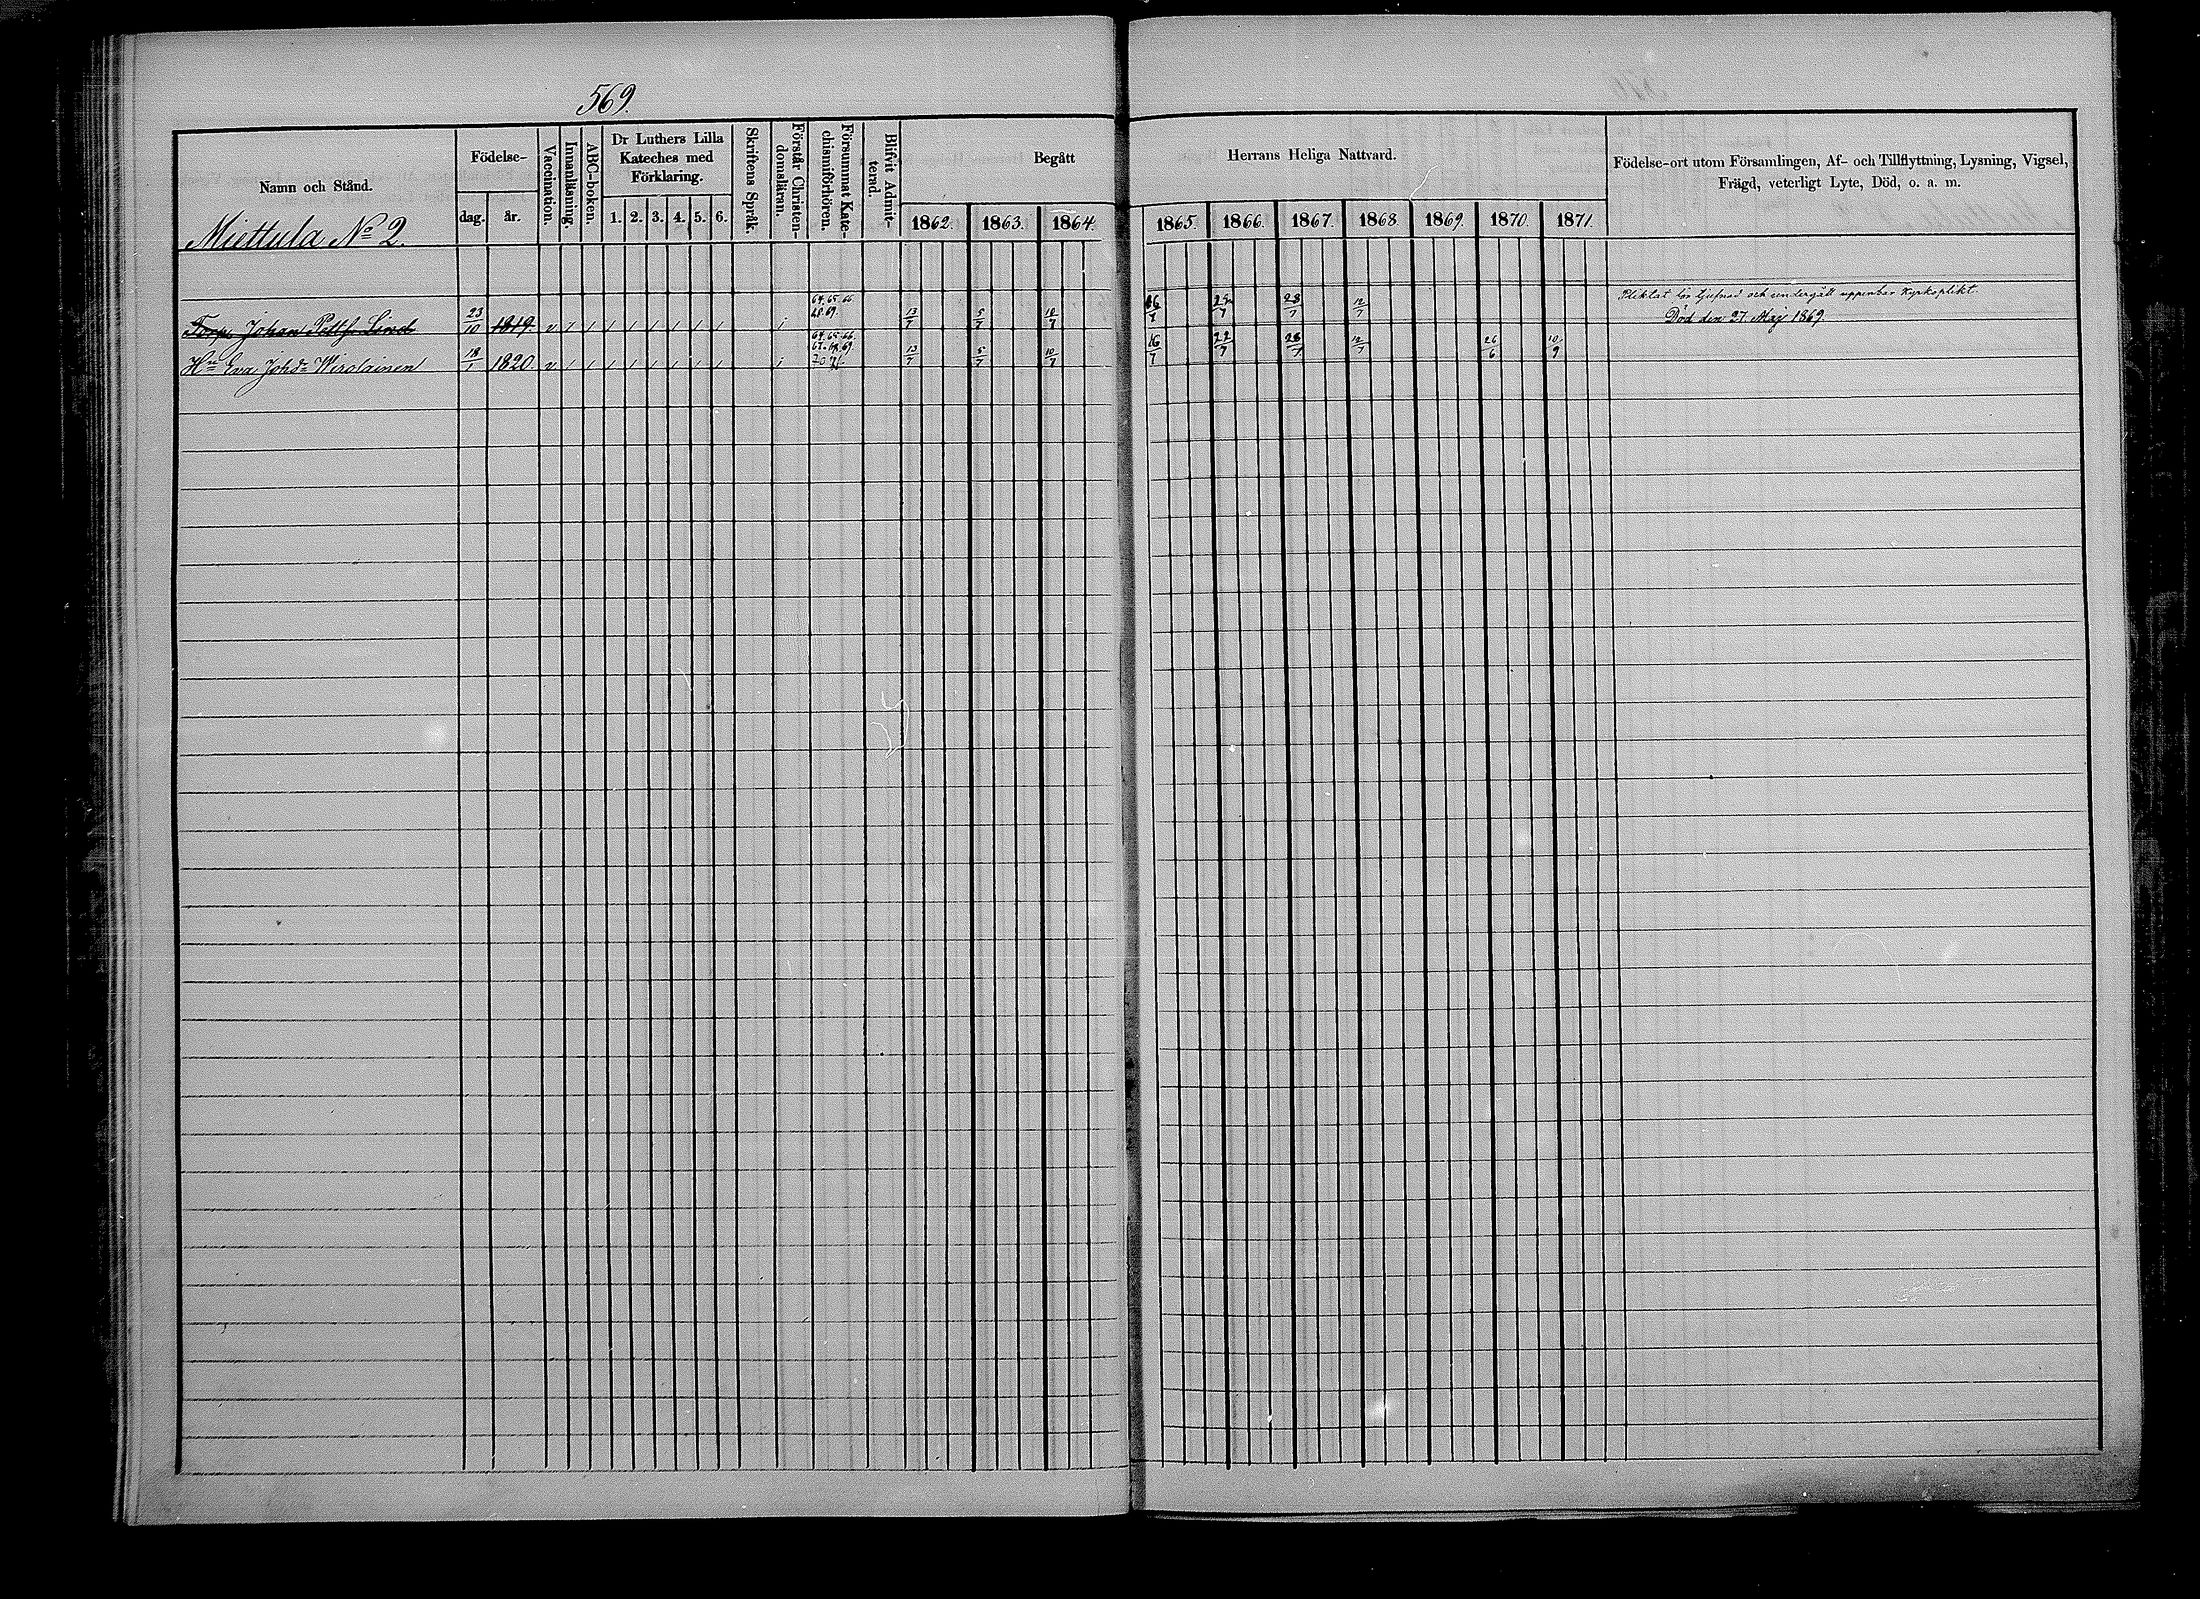 569.
Namn och Stånd. Födelse- dag. år. Vaccination. Innanläsning. ABC-boken. Dr Luthers Lilla Kateches med Förklaring. 1. 2. 3. 4. 5. 6. Skriftens Språk. Förstår Christen-domsläran. Försummat Kate-chismiförhören. Blifvit Admit-terad. Begått 1862. 1863. 1864. Herrans Heliga Nattvard. 1865. 1866. 1867. 1868. 1869. 1870. 1871. Födelse-ort utom Församlingen, Af- och Tillflyttning, Lysning, Vigsel, Frägd, veterligt Lyte, Död, o. a. m.
Miettula No 2.
Torp. Johan Pett:f. Lind 23/10 1819 v / / / / / / / / / 64. 65. 66. 68. 69. 13/7 5/7 10/7 16/7 28/7 12/7 Pliktat för tjufnad och undergått uppenbar Kyrkoplikt.
Död den 27 Maj 1869.
Hu Eva Johsdr Wirolainen 18/1 1820. v / / / / / / / / / 64. 65. 66. 67. 68. 69. 70. 71. 13/7 5/7 10/7 16/7 22/7 28/7 12/7 26/6 10/9